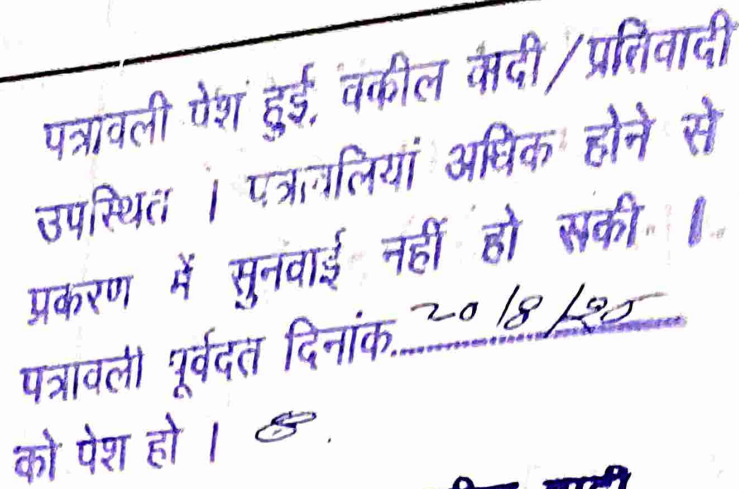 पत्रावली पेश हुई, वकील वादी/प्रतिवादी
उपस्थित । पत्रावलियां अधिक होने से
प्रकरण में सुनवाई नहीं हो सकी ।
पत्रावली पूर्वदत दिनांक 20/8/25
को पेश हो ।